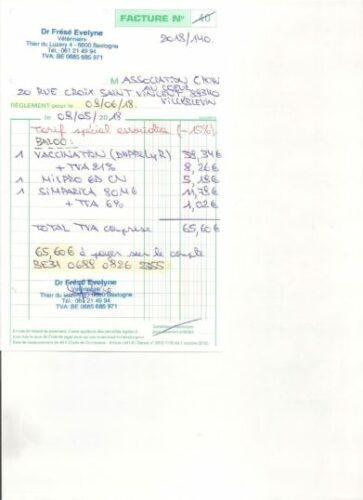 FACTURE N° 40
2018/140.
Dr Frésé Evelyne
Vétérinaire
Thier du Luzery 4 - 6600 Bastogne
Tél: 061 21 49 94
TVA: BE 0685 685 971
M ASSOCIATION CHON
AU COEUR
20 RUE CROIX SAINT VINCENT 88340
RÈGLEMENT pour le 08/06/18.
le 08/05/2018
Tarif spécial association (-15%)
BALOO:
1 VACCINATION (DHPPi Ly R) 39,34€
+ TVA 21% 8,26€
1 MILPRO CN 5,18€
1 SIMPARICA 80MG 11,78€
+ TVA 6% 1,02€
TOTAL TVA comprise 65,60€
65,60€ à payer sur le compte
BE31 0689 0826 2355
Dr Frésé Evelyne
Vétérinaire
6600 Bastogne
Tél: 061 21 49 94
TVA: BE 0685 685 971